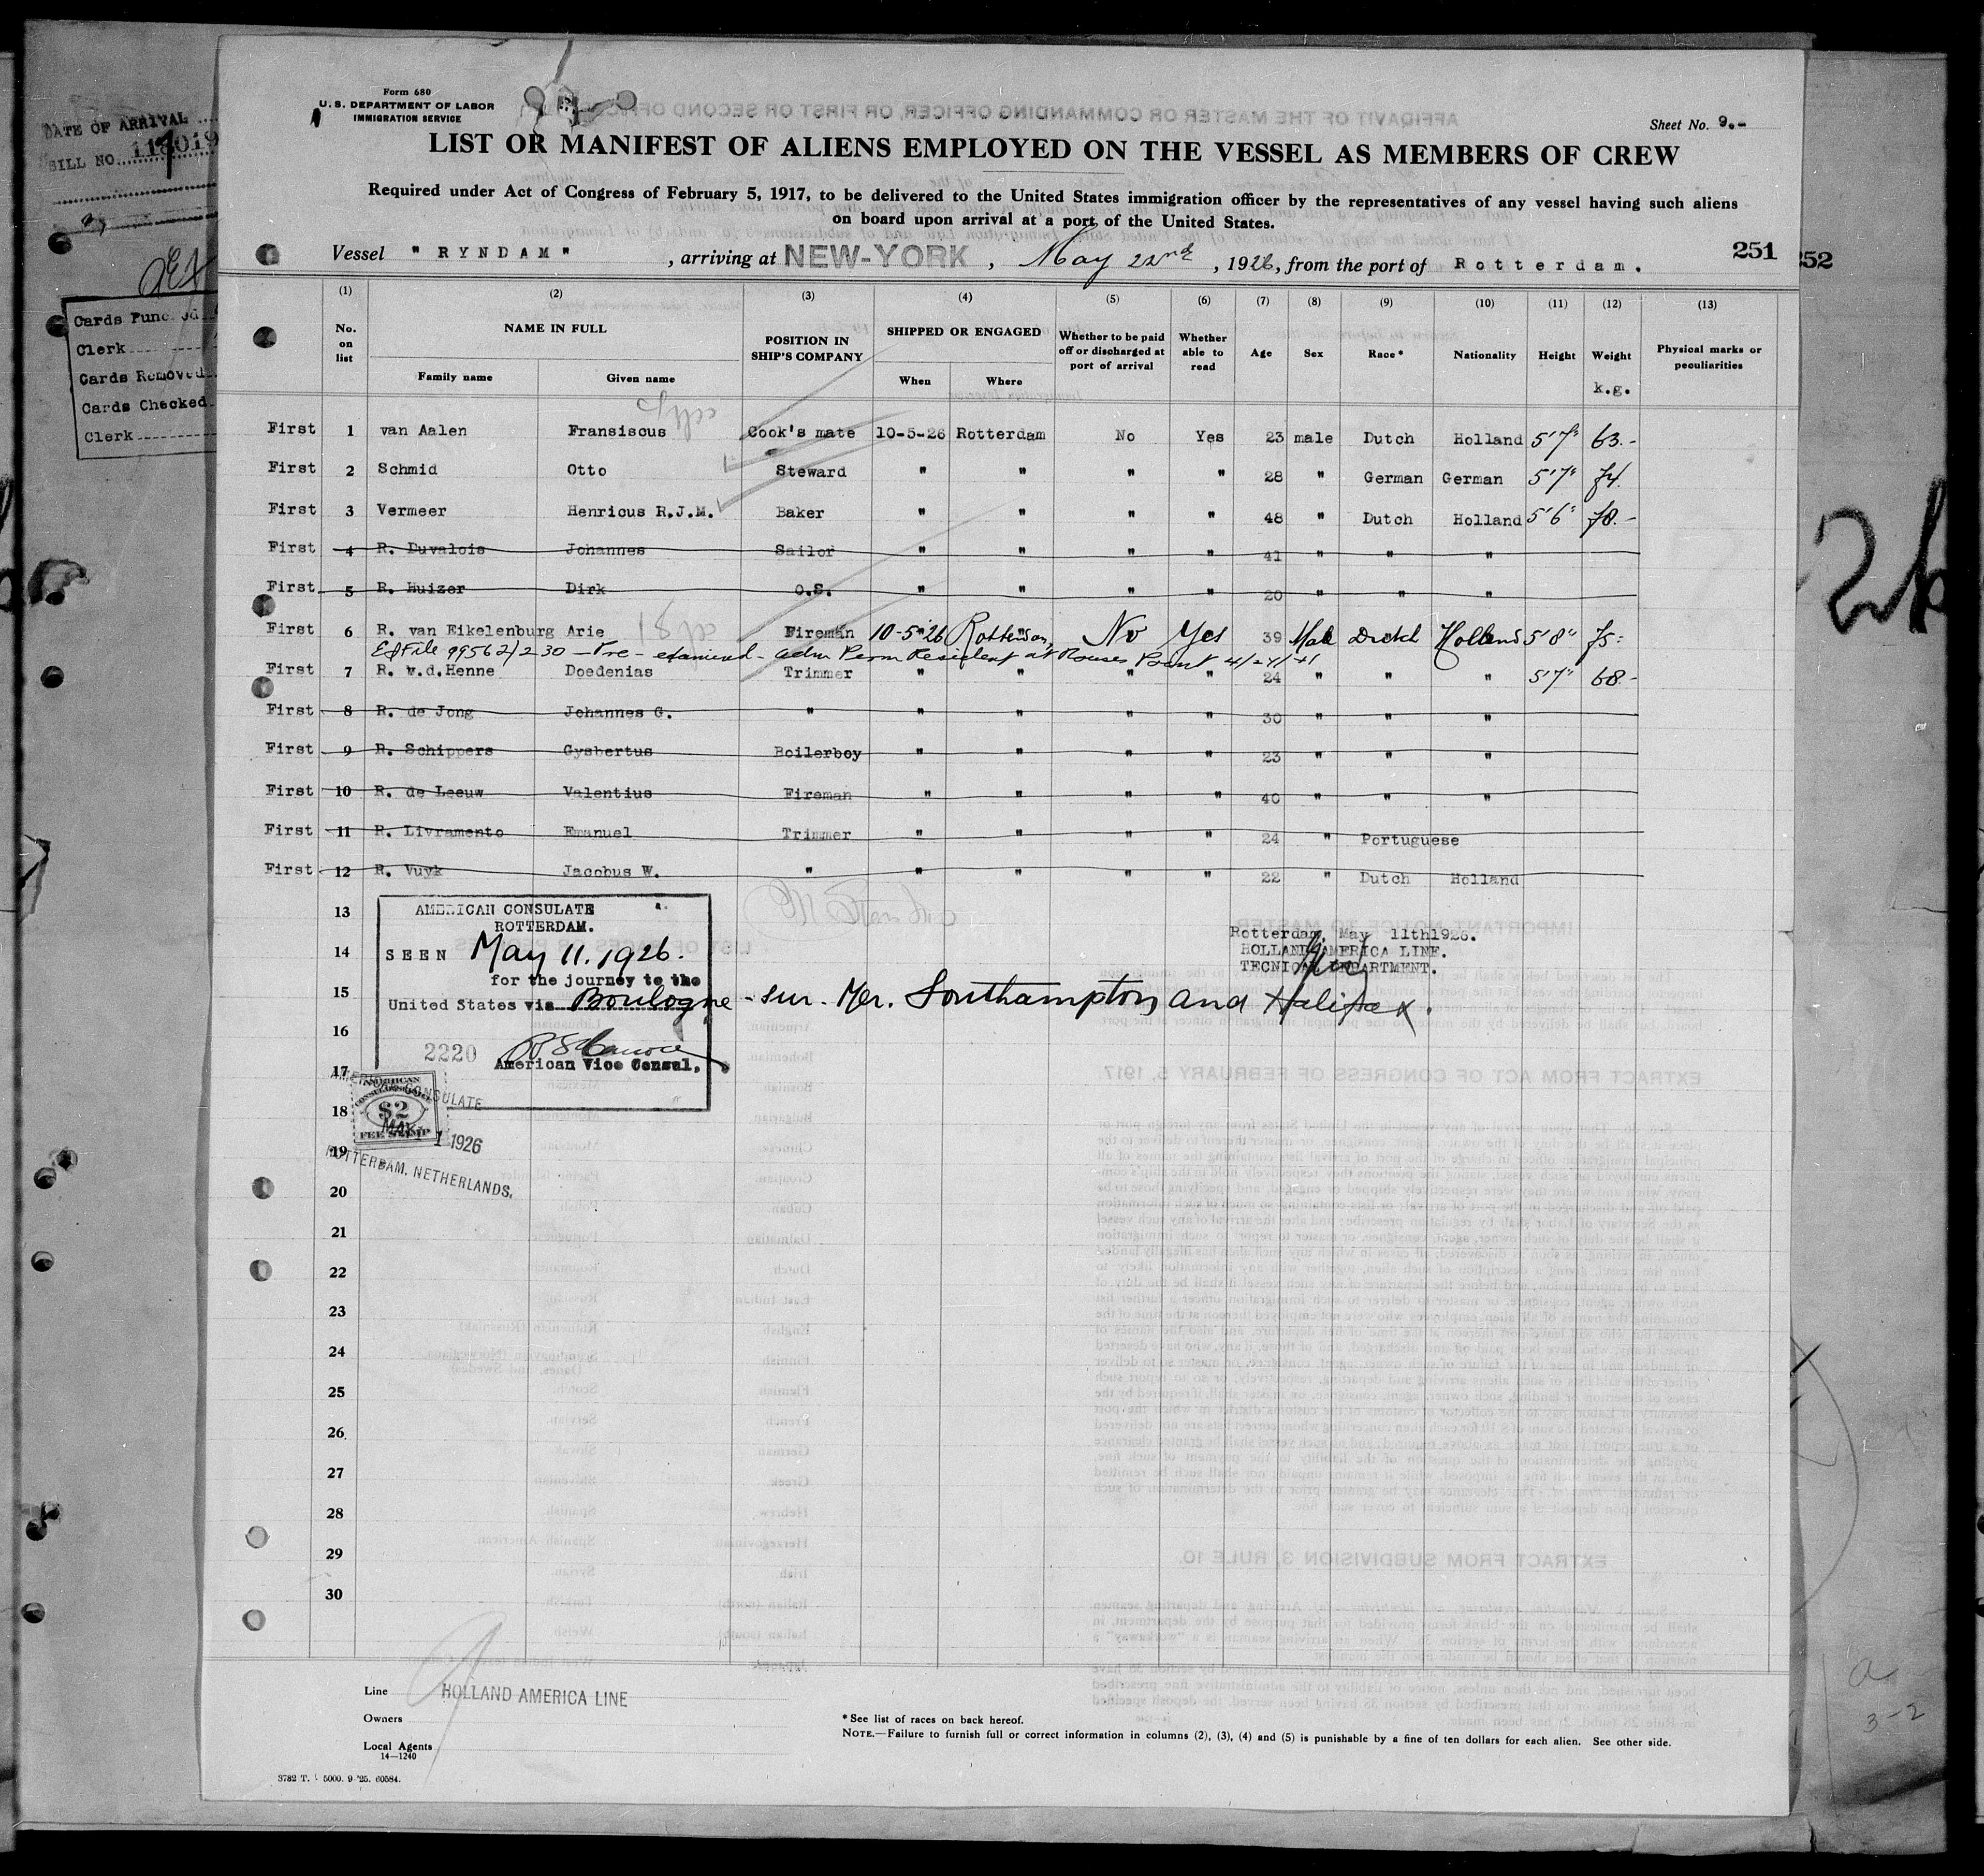 Form 680
U. S. DEPARTMENT OF LABOR
IMMIGRATION SERVICE
Sheet No. 9.-
LIST OR MANIFEST OF ALIENS EMPLOYED ON THE VESSEL AS MEMBERS OF CREW
Required under Act of Congress of February 5, 1917, to be delivered to the United States immigration officer by the representatives of any vessel having such aliens
on board upon arrival at a port of the United States.
Vessel "RYNDAM", arriving at NEW-YORK, May 22nd, 1926, from the port of Rotterdam. 251
252
DATE OF ARRIVAL
BILL NO.
Clerk
Cards Removed
Cards Checked
Clerk
(1) (2) (3) (4) (5) (6) (7) (8) (9) (10) (11) (12) (13)
No. on list NAME IN FULL POSITION IN SHIP'S COMPANY SHIPPED OR ENGAGED Whether to be paid off or discharged at port of arrival Whether able to read Age Sex Race* Nationality Height Weight Physical marks or peculiarities
Family name Given name When Where k.g.
First 1 van Aalen Fransiscus Cook's mate 10-5-26 Rotterdam No Yes 23 male Dutch Holland 5'7" 63.-
First 2 Schmid Otto Steward " " " " 28 " German German 5'7" 74.
First 3 Vermeer Henricus R.J.M. Baker " " " " 48 " Dutch Holland 5'6" 78.-
First 4 R. Duvalois Johannes Sailor " " " " 41 " " "
First 5 R. Huizer Dirk O.S. " " " " 20 " " "
First 6 R. van Eikelenburg Arie Fireman 10-5-26 Rotterdam No Yes 39 Male Dutch Holland 5'8" 75.-
Ed File 99562/230 - Pre-examined - adm Perm Resident at Rouses Point 4/24/41
First 7 R. v.d. Henne Doedenias Trimmer " " " " 24 " " " 5'7" 68.-
First 8 R. de Jong Johannes G. " " " " " 30 " " "
First 9 R. Schippers Gysbertus Boilerboy " " " " 23 " " "
First 10 R. de Leeuw Valentius Fireman " " " " 40 " " "
First 11 R. Livramento Emanuel Trimmer " " " " 24 " Portuguese
First 12 R. Vuyk Jacobus W. " " " " " 22 " Dutch Holland
13
14
15
16
17
18
19
20
21
22
23
24
25
26
27
28
29
30
AMERICAN CONSULATE
ROTTERDAM.
SEEN May 11. 1926.
for the journey to the
United States via Boulogne-sur-Mer. Southampton and Halifax.
2220
American Vice Consul.
Rotterdam, May 11th1926.
HOLLAND AMERICA LINE.
TECNICAL DEPARTMENT.
AMERICAN
$2
FEE STAMP
AMERICAN CONSULATE
MAY 11 1926
ROTTERDAM, NETHERLANDS.
Line HOLLAND AMERICA LINE
Owners
Local Agents
14-1240
3782 T. 5000. 9-'25. 60584.
*See list of races on back hereof.
NOTE.—Failure to furnish full or correct information in columns (2), (3), (4) and (5) is punishable by a fine of ten dollars for each alien. See other side.